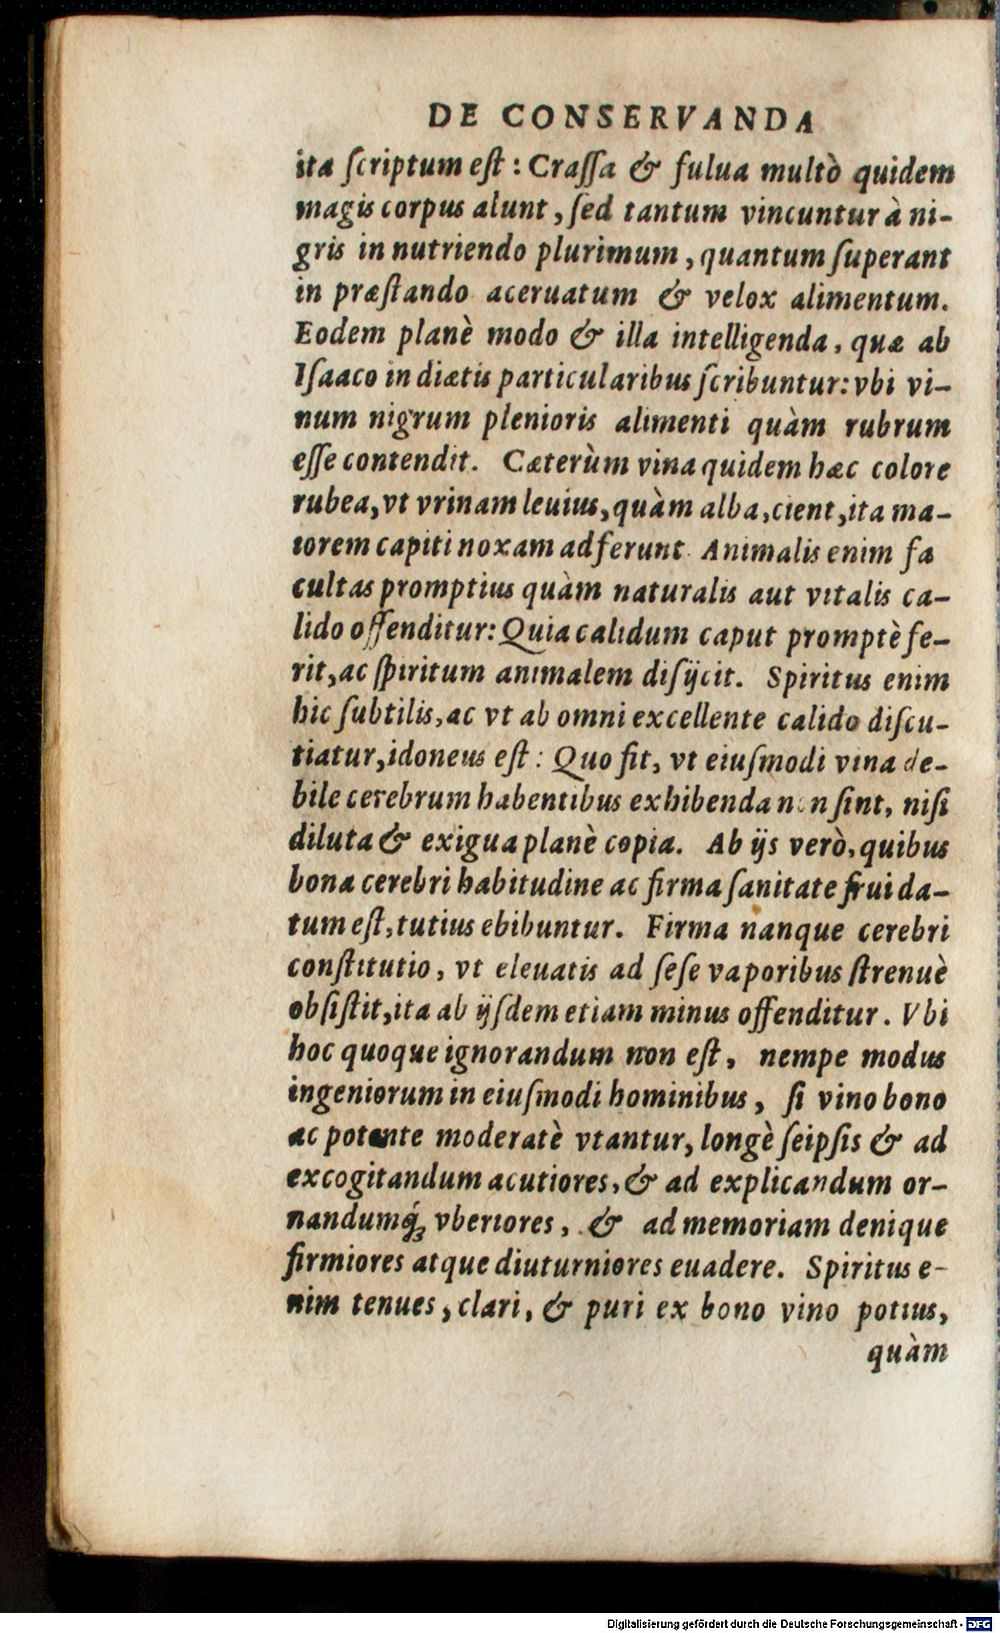 DE CONSERVANDA
ita ſcriptum eſt: Craſſa & fulua multò quidem
magis corpus alunt, ſed tantum vincuntur à ni-
gris in nutriendo plurimum, quantum ſuperant
in præſtando aceruatum & velox alimentum.
Eodem planè modo & illa intelligenda, quæ ab
Iſaaco in diætis particularibus ſcribuntur: vbi vi-
num nigrum plenioris alimenti quàm rubrum
eſſe contendit. Cæterùm vina quidem hæc colore
rubea, vt vrinam leuius, quàm alba, cient, ita ma-
iorem capiti noxam adferunt. Animalis enim fa
cultas promptius quàm naturalis aut vitalis ca-
lido offenditur: Quia calidum caput promptè fe-
rit, ac ſpiritum animalem diſijcit. Spiritus enim
hic ſubtilis, ac vt ab omni excellente calido diſcu-
tiatur, idoneus eſt: Quo fit, vt eiuſmodi vina de-
bile cerebrum habentibus exhibenda non ſint, niſi
diluta & exigua planè copia. Ab ijs verò, quibus
bona cerebri habitudine ac firma ſanitate frui da-
tum eſt, tutius ebibuntur. Firma nanque cerebri
conſtitutio, vt eleuatis ad ſeſe vaporibus ſtrenuè
obſiſtit, ita ab ijſdem etiam minus offenditur. Vbi
hoc quoque ignorandum non eſt, nempe modus
ingeniorum in eiuſmodi hominibus, ſi vino bono
ac potente moderatè vtantur, longè ſeipſis & ad
excogitandum acutiores, & ad explicandum or-
nandumq́; vberiores, & ad memoriam denique
firmiores atque diuturniores euadere. Spiritus e-
nim tenues, clari, & puri ex bono vino potius,
quàm
Digitalisierung gefördert durch die Deutsche Forschungsgemeinschaft - DFG